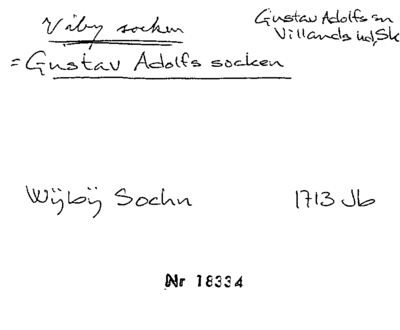 Viby socken
Gustav Adolfs sn
Villands hd, Sk
= Gustav Adolfs socken
Wÿbÿ Sochn
1713 Jb
Nr 18334